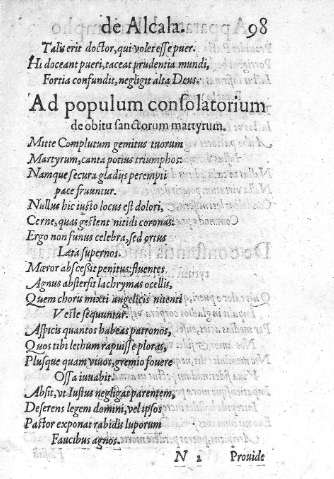 de Alcala. 98
Talis erit doctor, qui volet esse puer.
Hi doceant pueri, taceat prudentia mundi,
Fortia confundit, negligit alta Deus.
Ad populum consolatorium
de obitu sanctorum martyrum.
Mitte Complutum gemitus tuorum
Martyrum, canta potius triumphos:
Namque secura gladijs perempti
pace fruuntur.
Nullus hic iusto locus est dolori,
Cerne, quas gestent nitidi coronas:
Ergo non funus celebra, sed ortus
Læta supernos.
Mœror abscessit penitus: fluentes
Agnus abstersit lachrymas ocellis,
Quem choru mixti angelicis nitenti
Veste sequuntur.
Aspicis quantos habeas patronos,
Quos tibi lethum rapuisse ploras,
Plusque quam vivos, gremio fovere
Ossa iuvabit.
Absit, vt Iustus negligat parentem,
Deserens legem domini, vel ipsos
Pastor exponat rabidis luporum
Faucibus agnos.
N 2 Provide